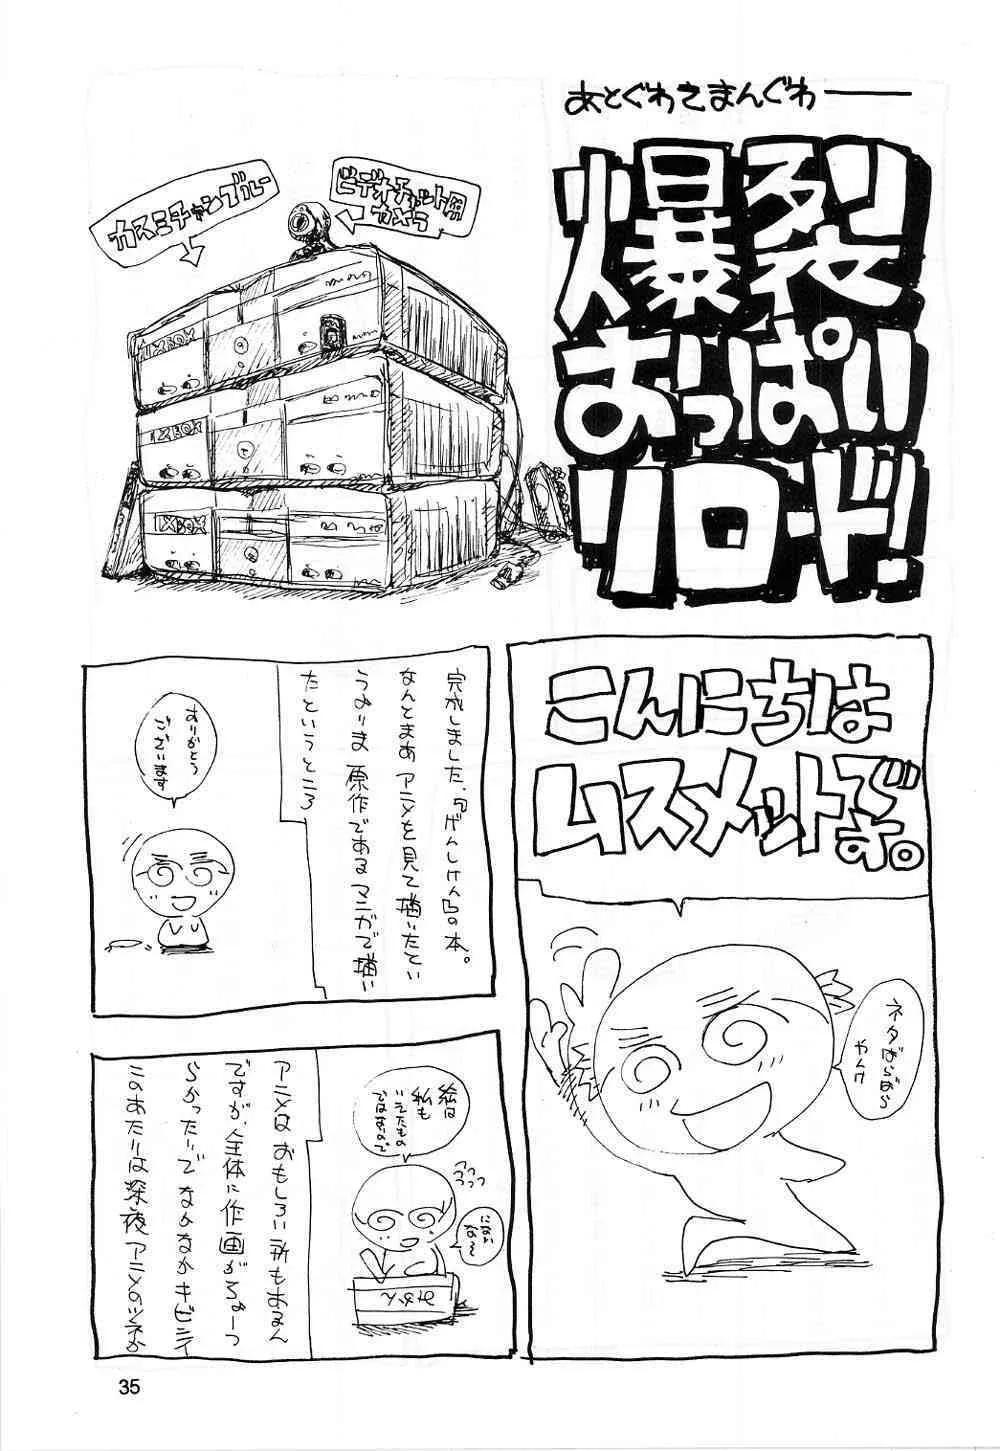 あとぐわきまんぐわ
爆裂
おっぱい
リロード!
カスミチャンブルー
ビデオチャット用
カメラ
XBOX
XBOX
XBOX
こんにちは
ムスメットです。
ネタばらばら
やんけ
完成しました、『げんしけん』の本。
なんとまあアニメを見て描いたてい
うみりま原作であるマンガで描い
たというところ
ありがとう
ございます
絵は
私も
いえたもの
ではないので
にない
な〜
みかん
アニメはおもしろい所もあるん
ですが、全体に作画がちょーっ
らかったりでなかなかキビシイ
このあたりは深夜アニメのツネか
35